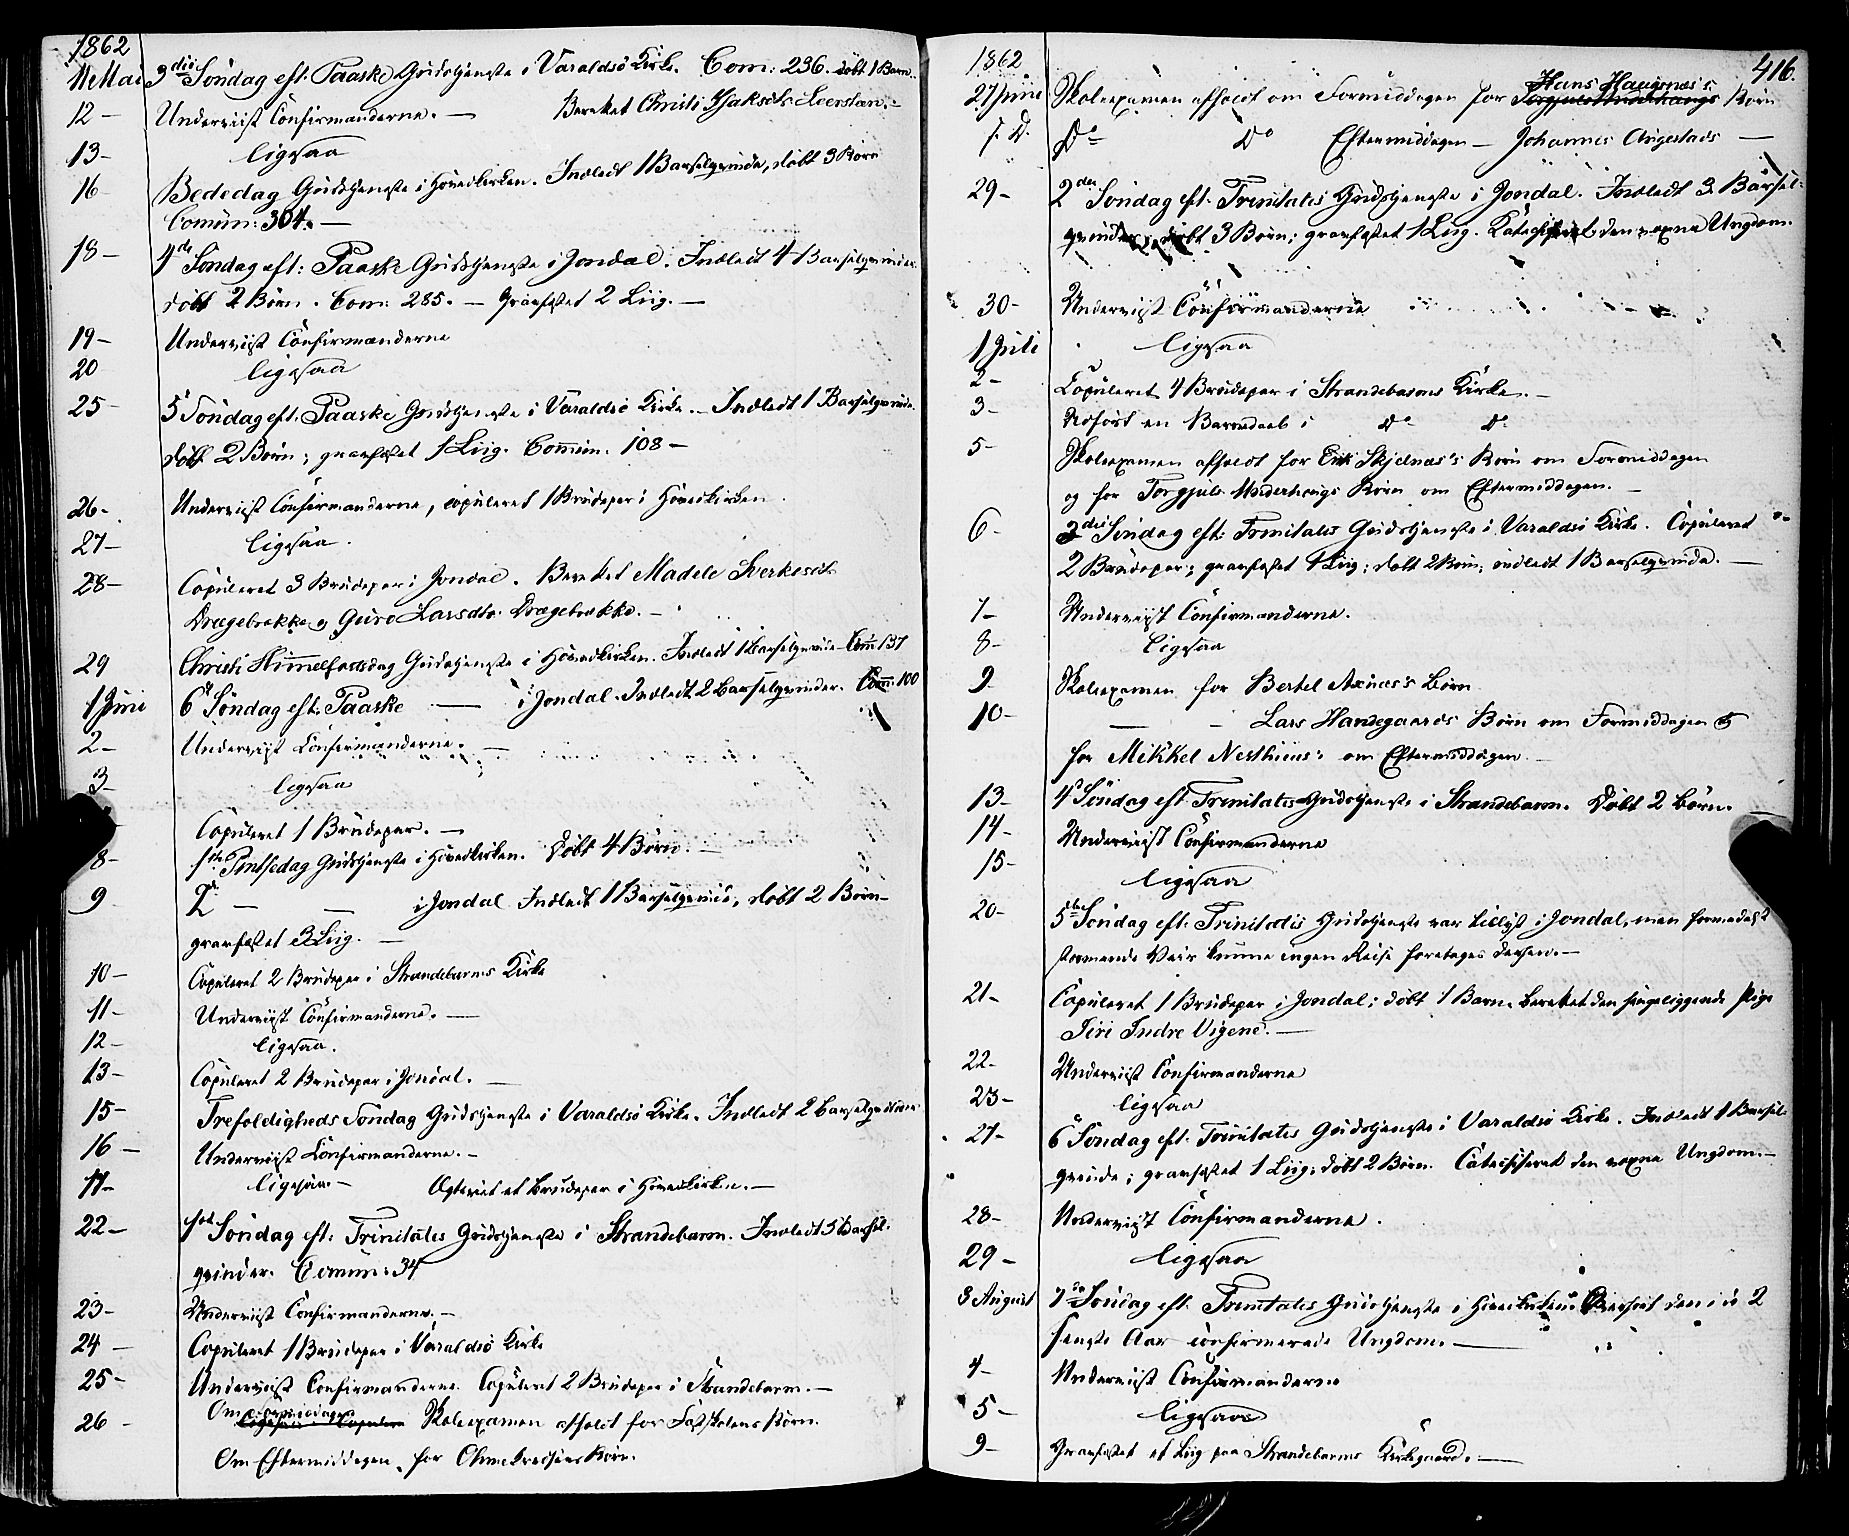 1862
11te Mai 3die Söndag eft: Paaske Gudstjeneste i Varaldsö Kirke. Com: 236. döbt 1 Barn.
12 – Underviist Confirmanderne. – Berettet Christi
13 – ligesaa
16 Bededag Gudstjeneste i Hovedkirken. Indledt 1 Barselqvinde, döbt 3 Börn
Comun: 304. –
18 – 4de Söndag eft: Paaske Gudstjeneste i Jondal. Indledt 4 Barselqvinder.
döbt 2 Börn. Com: 285. – Gravfæstet 2 Liig. –
19 – Underviist Confirmanderne
20 ligesaa
25 – 5 Söndag eft. Paaske Gudstjeneste i Varaldsö Kirke. – Indledt 1 Barselqvinde.
döbt 2 Börn; gravfæstet 1 Liig. Comun. 108 –
26 – Underviist Confirmanderne, copuleret 1 Brudepar i Hovedkirken.
27 – ligesaa.
28 – Copuleret 3 Brudepar i Jondal. Berettet Madele Sverkesdtr
Drægebrekke og Guro Larsdtr. Drægebrekke. –
29 Christi Himmelfartsdag Gudstjeneste i Hovedkirken. Indledt 1 Barselqvinde – Com 137
1 Juni 6 Söndag eft. Paaske — i Jondal. Indledt 2 Barselqvinder. Com: 100
2 – Underviist Confirmanderne. –
3 – ligesaa
Copuleret 1 Brudepar. –
8 – 1ste Pintsedag Gudstjeneste i Hovedkirken. Döbt 4 Börn. –
9 2 – — i Jondal Indledt 1 Barselqvinde, döbt 2 Börn –
gravfæstet 3 Liig. –
10 – Copuleret 2 Brudepar i Strandebarms Kirke
11 – Underviist Confirmanderne. —
12 – ligesaa.
13 – Copuleret 2 Brudepar i Jondal. —
15 – Trefoldigheds Söndag Gudstjeneste i Varaldsö Kirke. Indledt 2 Barselqvinder
16 – Underviist Confirmanderne. –
17 – ligesaa. – Ægteviet et Brudepar i Hovedkirken. —
22 – 1ste Söndag eft: Trinitatis Gudstjeneste i Strandebarm. Indledt 5 Barsel-
qvinder. Comun: 34
23 – Underviist Confirmanderne. –
24 – Copuleret 1 Brudepar i Varaldsö Kirke
25 – Underviist Confirmanderne. Copuleret 2 Brudepar i Strandebarm. –
26 – Om Formiddagen Skoleexamen afholdt for Fastskolens Börn.
Om Eftermiddagen for Börn.
416.
1862
27 Juni Skoleexamen afholdt om Formiddagen for Hans Haugsnæs's Börn
s. D. Do Do Eftermiddagen – Johannes —
29 – 2den Söndag eft. Trinitatis Gudstjeneste i Jondal. Indledt 3 Barsel-
qvinder; döbt 3 Börn; gravfæstet 1 Liig. Katechiseret den voxne Ungdom.
30 – Underviist Confirmanderne
1 Juli ligesaa
2 – Copuleret 4 Brudepar i Strandebarms Kirke. –
3 – Udfört en Barnedaab i Do Do
5 – Skoleexamen afholdt for Erik Skjelnæs's Börn om Formiddagen
og for Torgjuls Underhaugs Börn om Eftermiddagen. –
6 – 3die Söndag eft: Trinitatis Gudstjeneste i Varaldsö Kirke. Copuleret
2 Brudepar; gravfæstet 1 Liig; döbt 2 Börn; indledt 1 Barselqvinde. —
7 – Underviist Confirmanderne.
8 – ligesaa
9 – Skoleexamen for Bertel Axnæs's Börn
10 – — – Lars Handegaards Börn om Formiddagen &
for Mikkel Nesthuus's om Eftermiddagen –
13 – 4 Söndag eft Trinitatis Gudstjeneste i Strandebarm. Döbt 2 Börn.
14 – Underviist Confirmanderne
15 – ligesaa
20 – 5te Söndag eft. Trinitatis Gudstjeneste var tillyst i Jondal, men formedelst
stormende Veir kunne ingen Reise foretages dersen. –
21 – Copuleret 1 Brudepar i Jondal; döbt 1 Barn. Berettet den sengeliggende Pige
Siri Indre Vigene. —
22 – Underviist Confirmanderne
23 – ligesaa
27 – 6 Söndag eft. Trinitatis Gudstjeneste i Varaldsö Kirke. Indledt 1 Barsel-
qvinde; gravfæstet 1 Liig; döbt 2 Börn. Catechiseret den voxne Ungdom. –
28 – Underviist Confirmanderne.
29 – ligesaa
3 August 7de Söndag eft. Trinitatis Gudstjeneste i Hovedkirken. Overhört den i de 2
seneste Aar confirmerede Ungdom. —
4 – Underviist Confirmanderne
5 – ligesaa
9 – Gravfæstet et Liig paa Strandebarms Kirkegaard. —